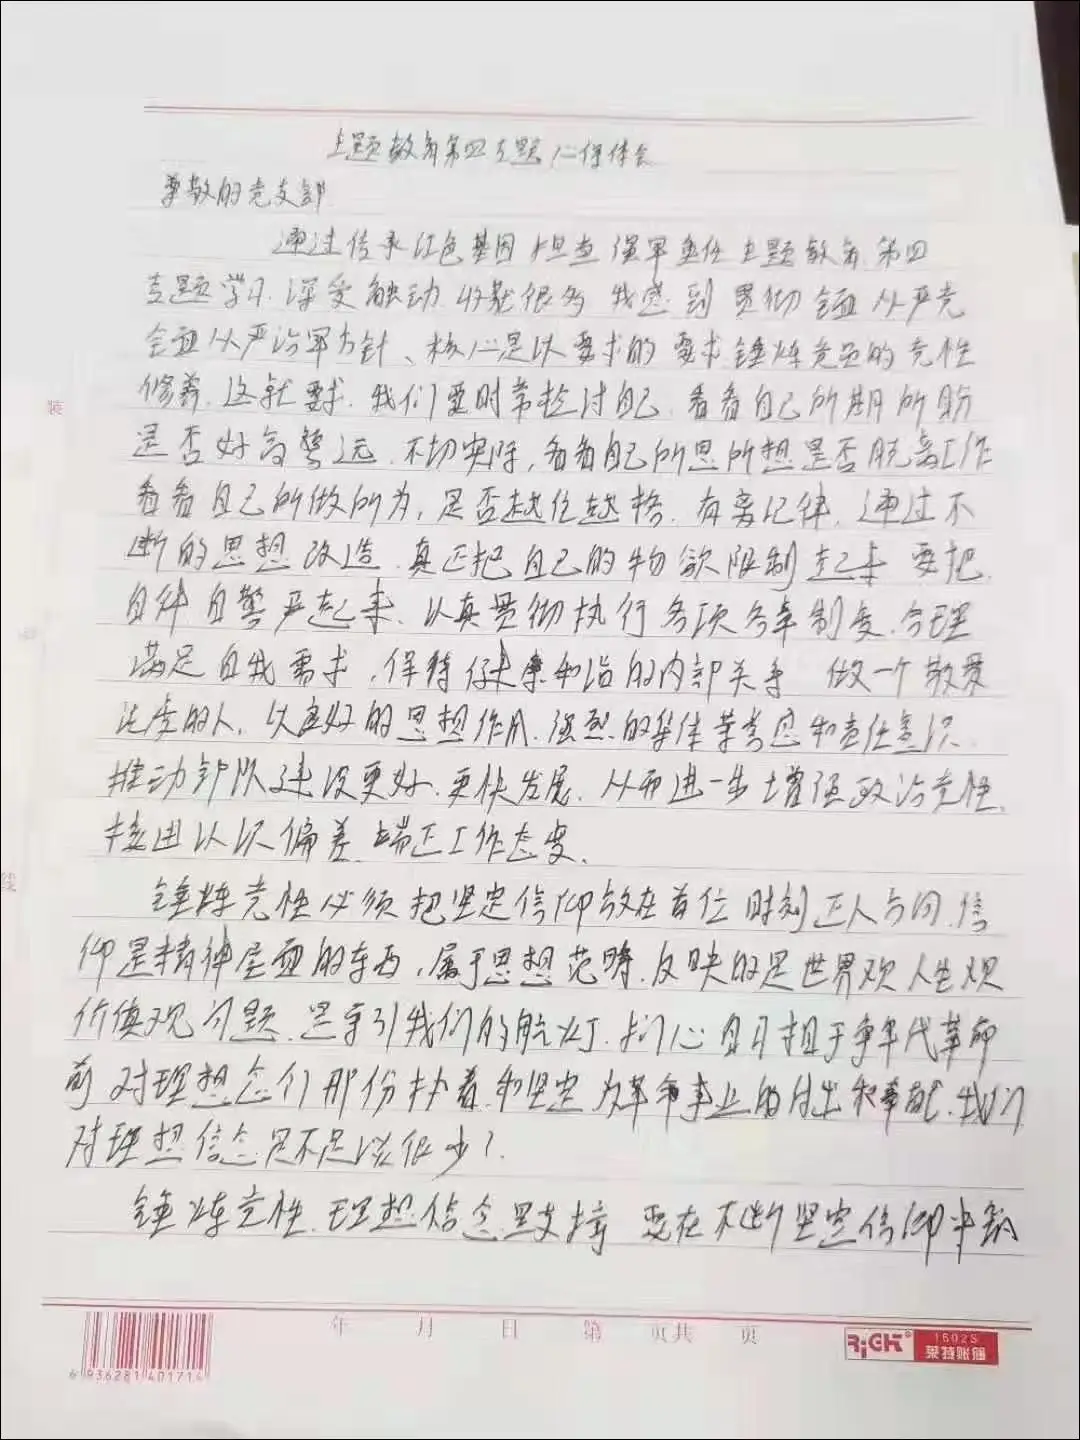 主题教育第四专题心得体会
尊敬的党支部
通过传承红色基因 担当强军重任 主题教育 第四
专题学习,深受触动,收获很多,我感到贯彻全面从严治党
全面从严治军方针、核心是以要求的要求锤炼党员的党性
修养,这就要求,我们要时常检讨自己,看看自己所期所盼
是否好高骛远,不切实际,看看自己所思所想是否脱离工作
看看自己所做所为,是否越位越格,有离纪律,通过不
断的思想改造,真正把自己的物欲限制起来 要把
自律自警严起来,认真贯彻执行各项各章制度,合理
满足自我需求,保持健康和谐的内部关系 做一个敬畏
法度的人,以良好的思想作风,强烈的集体荣誉感和责任意识
推动部队建设更好、更快发展,从而进一步增强政治党性,
校正认识偏差,端正工作态度、
锤炼党性必须把坚定信仰放在首位 时刻正人方向,信
仰是精神层面的东西,属于思想范畴,反映的是世界观人生观
价值观问题,是牵引我们的航灯,扪心自问相于争年代革命
前对理想念们那份执着和坚定 为革命事业的付出和奉献,我们
对理想信念是不是谈很少?
锤炼党性,理想信念是支撑 要在不断坚定信仰中
年 月 日 第 页共 页
装
线
6 936281 401714
RiCH
1502S
莱特账簿